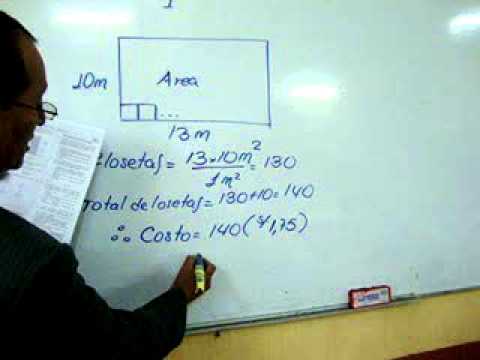 10m
Area
...
13 m
losetas = 13×10m² / 1m² = 130
Total de losetas = 130+10 = 140
∴ Costo = 140($/1,75)